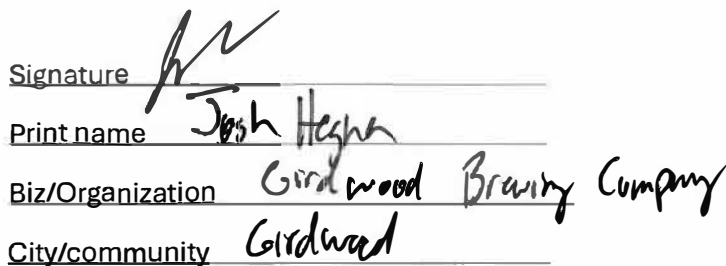 Signature
Print name Josh Hegna
Biz/Organization Girdwood Brewing Company
City/community Girdwood